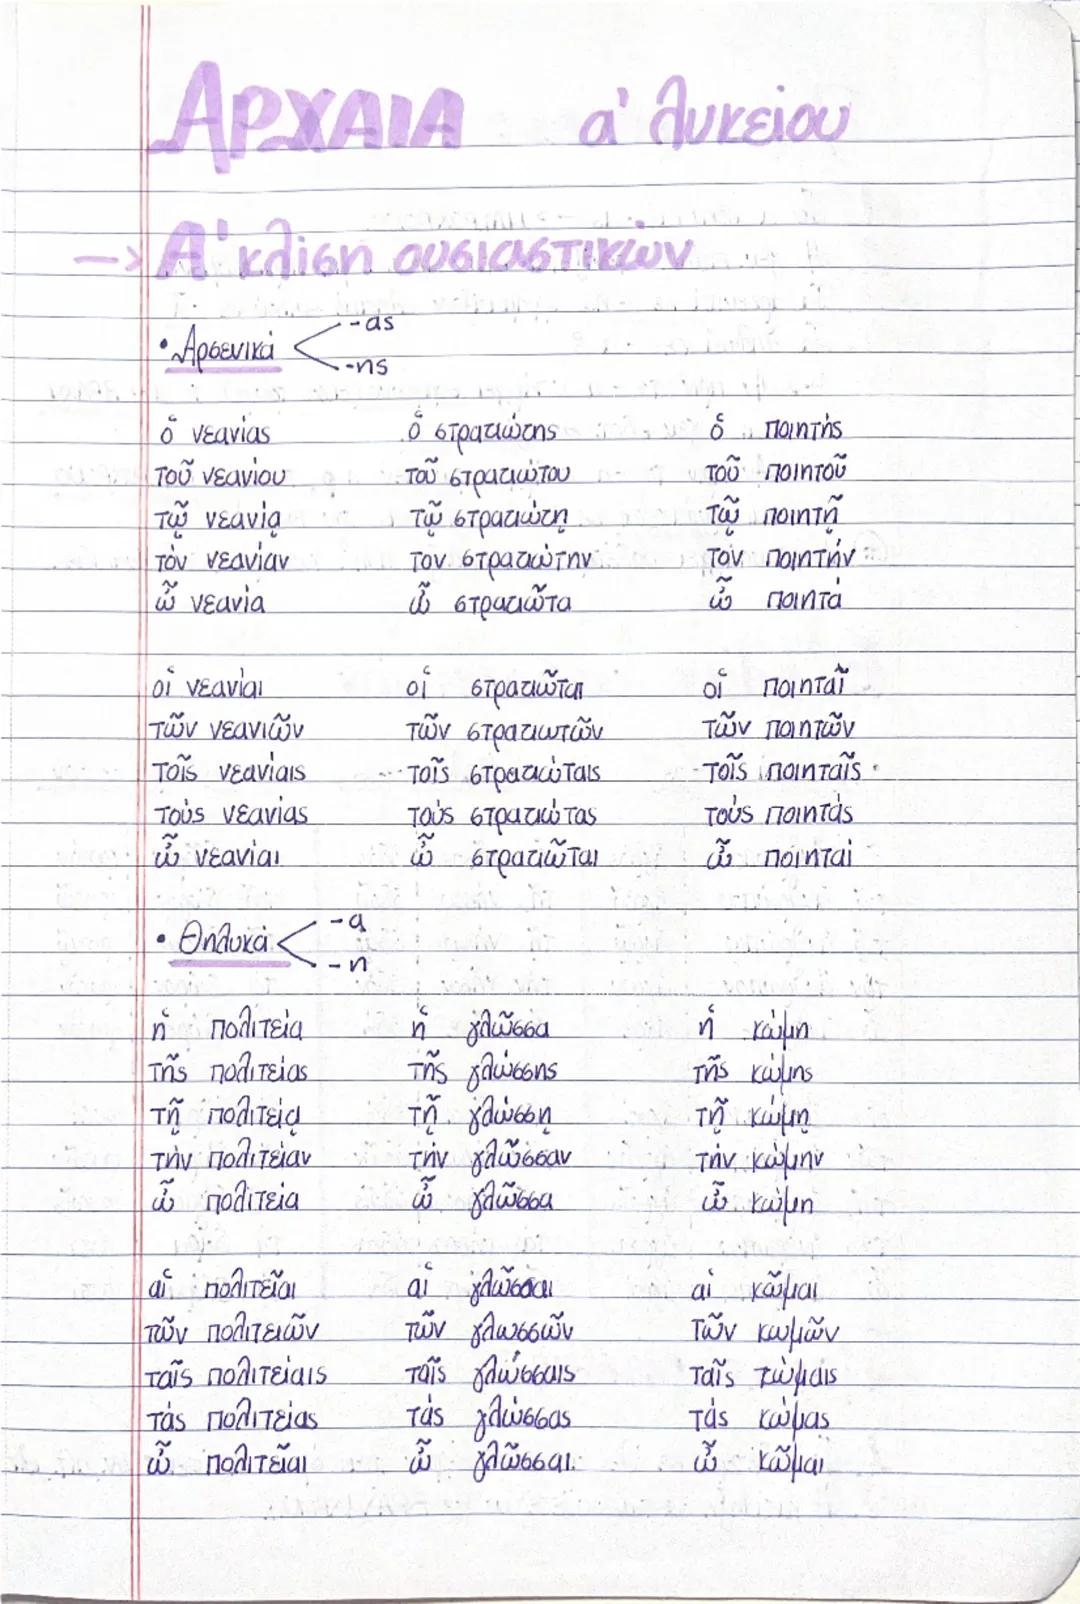 ΑΡΧΑΙΑ α' λυκείου
→ Α' κλίση ουσιαστικών
• Αρσενικά -ας
-ης
ὁ νεανίας ὁ στρατιώτης ὁ ποιητής
τοῦ νεανίου τοῦ στρατιώτου τοῦ ποιητοῦ
τῷ νεανίᾳ τῷ στρατιώτῃ τῷ ποιητῇ
τόν νεανίαν τον στρατιώτην τόν ποιητήν
ὦ νεανία ὦ στρατιῶτα ὦ ποιητά
οἱ νεανίαι οἱ στρατιῶται οἱ ποιηταῖ
τῶν νεανιῶν τῶν στρατιωτῶν τῶν ποιητῶν
τοῖς νεανίαις τοῖς στρατιώταις τοῖς ποιηταῖς
τούς νεανίας τούς στρατιώτας τούς ποιητάς
ὦ νεανίαι ὦ στρατιῶται ὦ ποιηταί
• Θηλυκά -α
-η
ἡ πολιτεία ἡ γλῶσσα ἡ κώμη
τῆς πολιτείας τῆς γλώσσης τῆς κώμης
τῇ πολιτείᾳ τῇ γλώσσῃ τῇ κώμῃ
τήν πολιτείαν τήν γλῶσσαν τήν κώμην
ὦ πολιτεία ὦ γλῶσσα ὦ κώμη
αἱ πολιτεῖαι αἱ γλῶσσαι αἱ κῶμαι
τῶν πολιτειῶν τῶν γλωσσῶν τῶν κωμῶν
ταῖς πολιτείαις ταῖς γλώσσαις ταῖς τώμαις
τάς πολιτείας τάς γλώσσας τάς κώμας
ὦ πολιτεῖαι ὦ γλῶσσαι ὦ κῶμαι